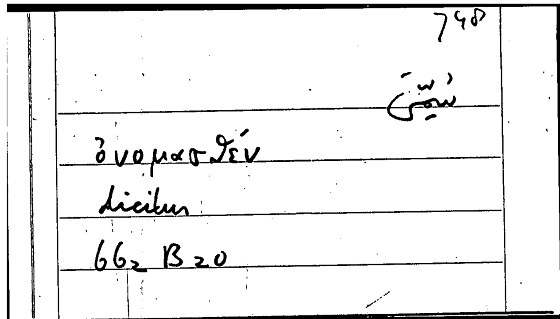 748
ὀνομασθέν
dicitur
662 B 20